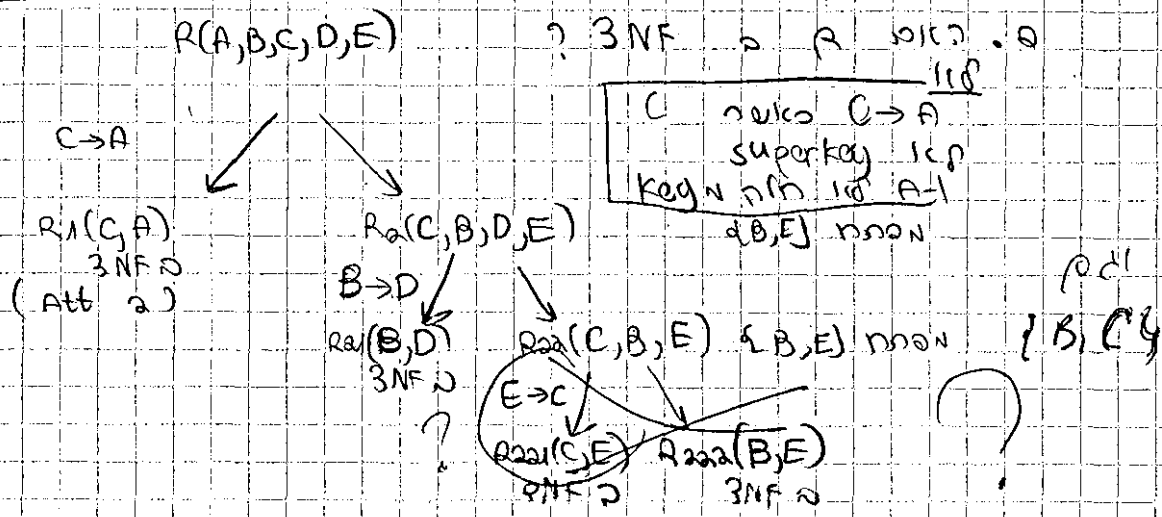 R(A,B,C,D,E)
ם. האם R ב 3NF ?
לא
C→A כאשר C
לא superkey
ו-A לא חלק מ Key
C→A
R1(C,A)
ב 3NF
(2 Att)
R2(C,B,D,E)
מפתח {B,E}
B→D
R21(B,D)
ב 3NF
?
R22(C,B,E)
מפתח {B,E}
וגם
{B,C}
?
E→C
R221(C,E)
ב 3NF
R222(B,E)
ב 3NF